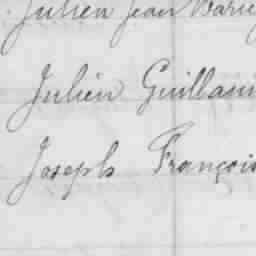 Julien Jean Marie
Julien Guillau
Joseph François